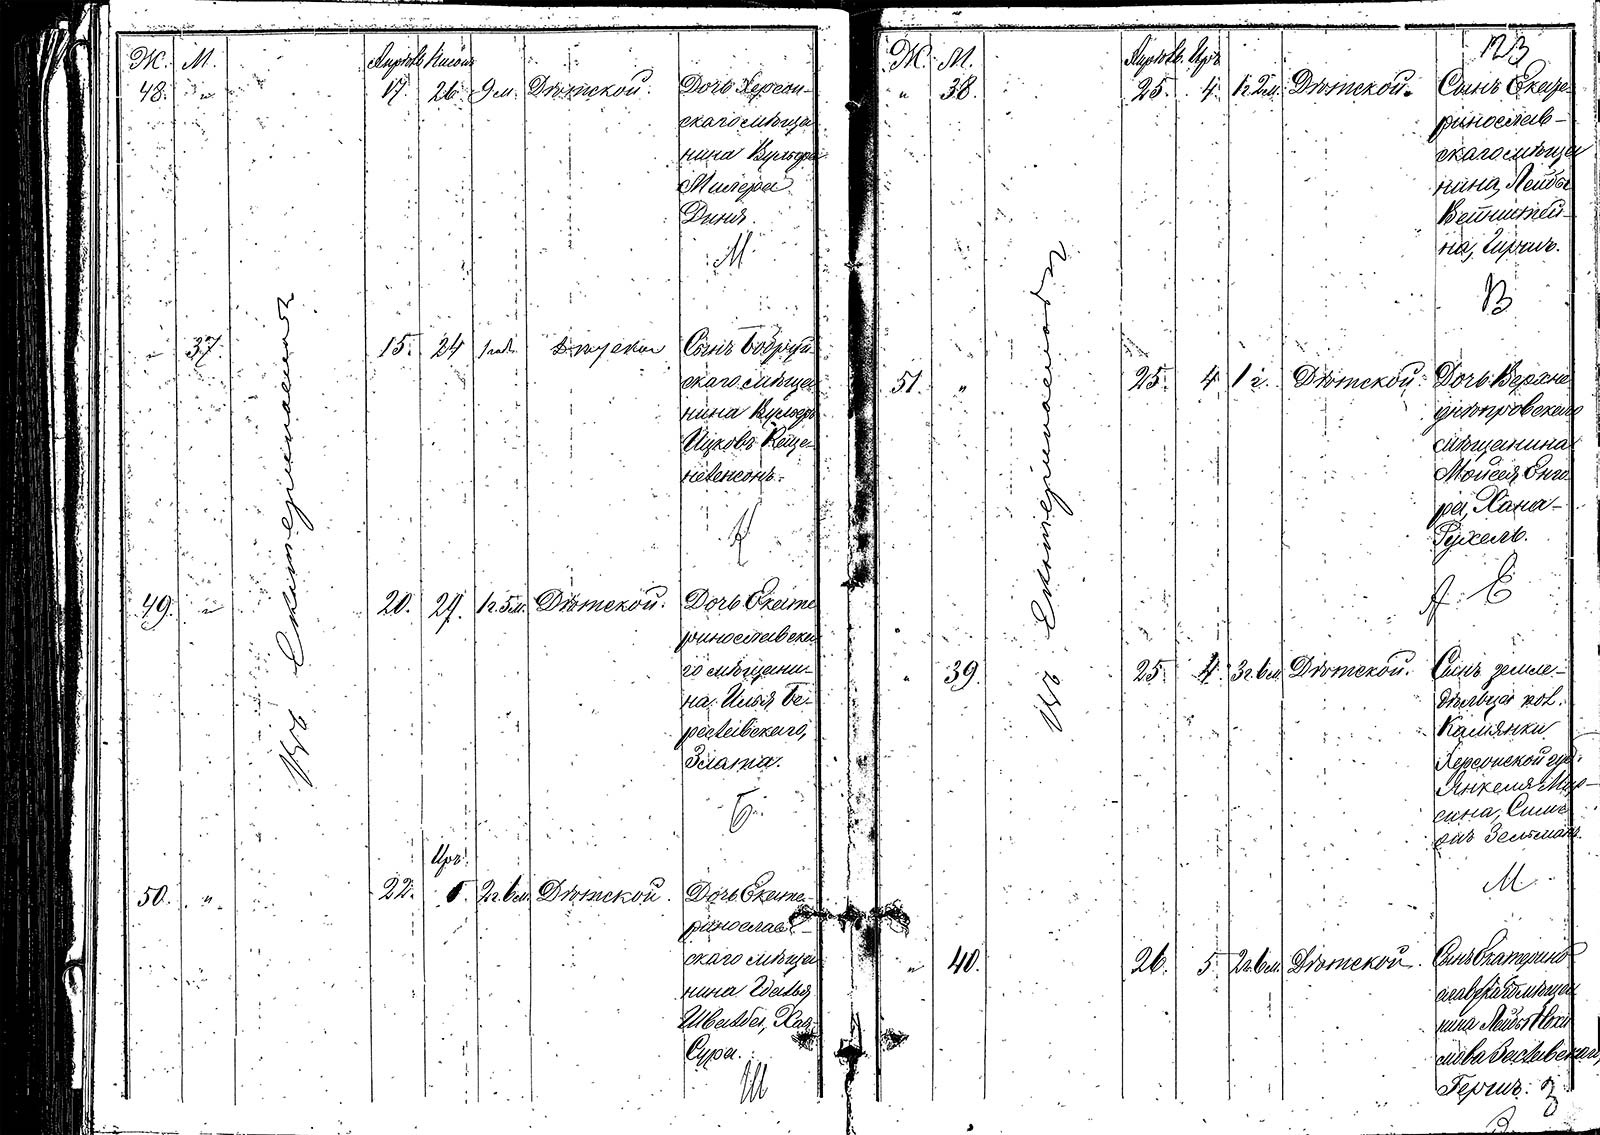 Ж. М. Апрѣль Нисонъ
48. " 17. 26. 9 м. Дѣтской. Дочь Херсон-
скаго мѣща
нина Вульфа
Милера
Диня.
М
" 37. 15. 24 1 годъ Дѣтской Сынъ Бобруй
скаго мѣща
нина Вульфъ
Ицковъ
К
49. " 20. 29. 1 г. 5 м. Дѣтской. Дочь Екате
ринославска
го мѣщани-
на Илья Бе-
реставскаго,
Злата.
Б
Иръ.
50. " 22. 1. 2 г. 6 м. Дѣтской. Дочь Екате
ринослав-
скаго мѣща
нина Гдалья
Швальба, Хая-
Сура.
Ш
Въ Екатеринославѣ
123
Ж. М. Апрѣль. Иръ
" 38. 25. 4. 1 г. 2 м. Дѣтской. Сынъ Екате
ринослав-
скаго мѣща
нина, Лейбы
Вейнштей-
на, Гиршъ.
В
51. " 25. 4 1 г. Дѣтской. Дочь Верхне
днѣпровскаго
мѣщанина
Мойсея Енго
ра, Хана-
Рухель.
А Е
" 39. 25. 4. 3 г. 6 м. Дѣтской. Сынъ земле-
дѣльца кол.
Камянки
Херсонской губ.
Янкеля Мир-
сина,
Зельманъ.
М
" 40. 26. 5 2 г. 6 м. Дѣтской. Сынъ Екатерино
славскаго мѣща
нина Лейбы
Заславскаго,
Гершъ. З
Въ Екатеринославѣ